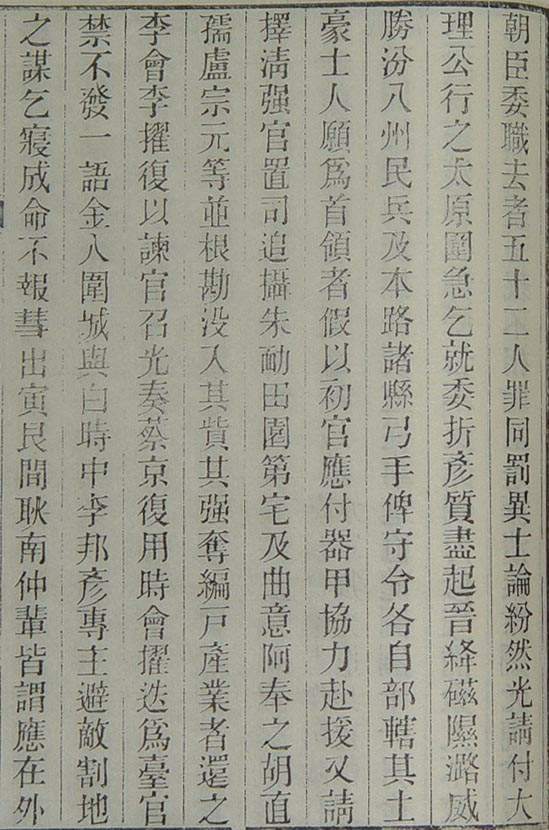 朝臣委職去者五十二人罪同罰異士論紛然光請付大
理公行之太原圍急乞就委折彥質盡起晉絳磁隰潞威
勝汾八州民兵及本路諸縣弓手俾守令各自部轄其土
豪士人願爲首領者假以初官應付器甲協力赴援又請
擇淸强官置司追攝朱勔田園第宅及曲意阿奉之胡直
孺盧宗元等並根勘没入其貲其强奪編戸產業者還之
李會李擢復以諫官召光奏蔡京復用時會擢迭爲臺官
禁不發一語金人圍城與白時中李邦彥專主避敵割地
之謀乞寢成命不報彗出寅艮間耿南仲輩皆謂應在外